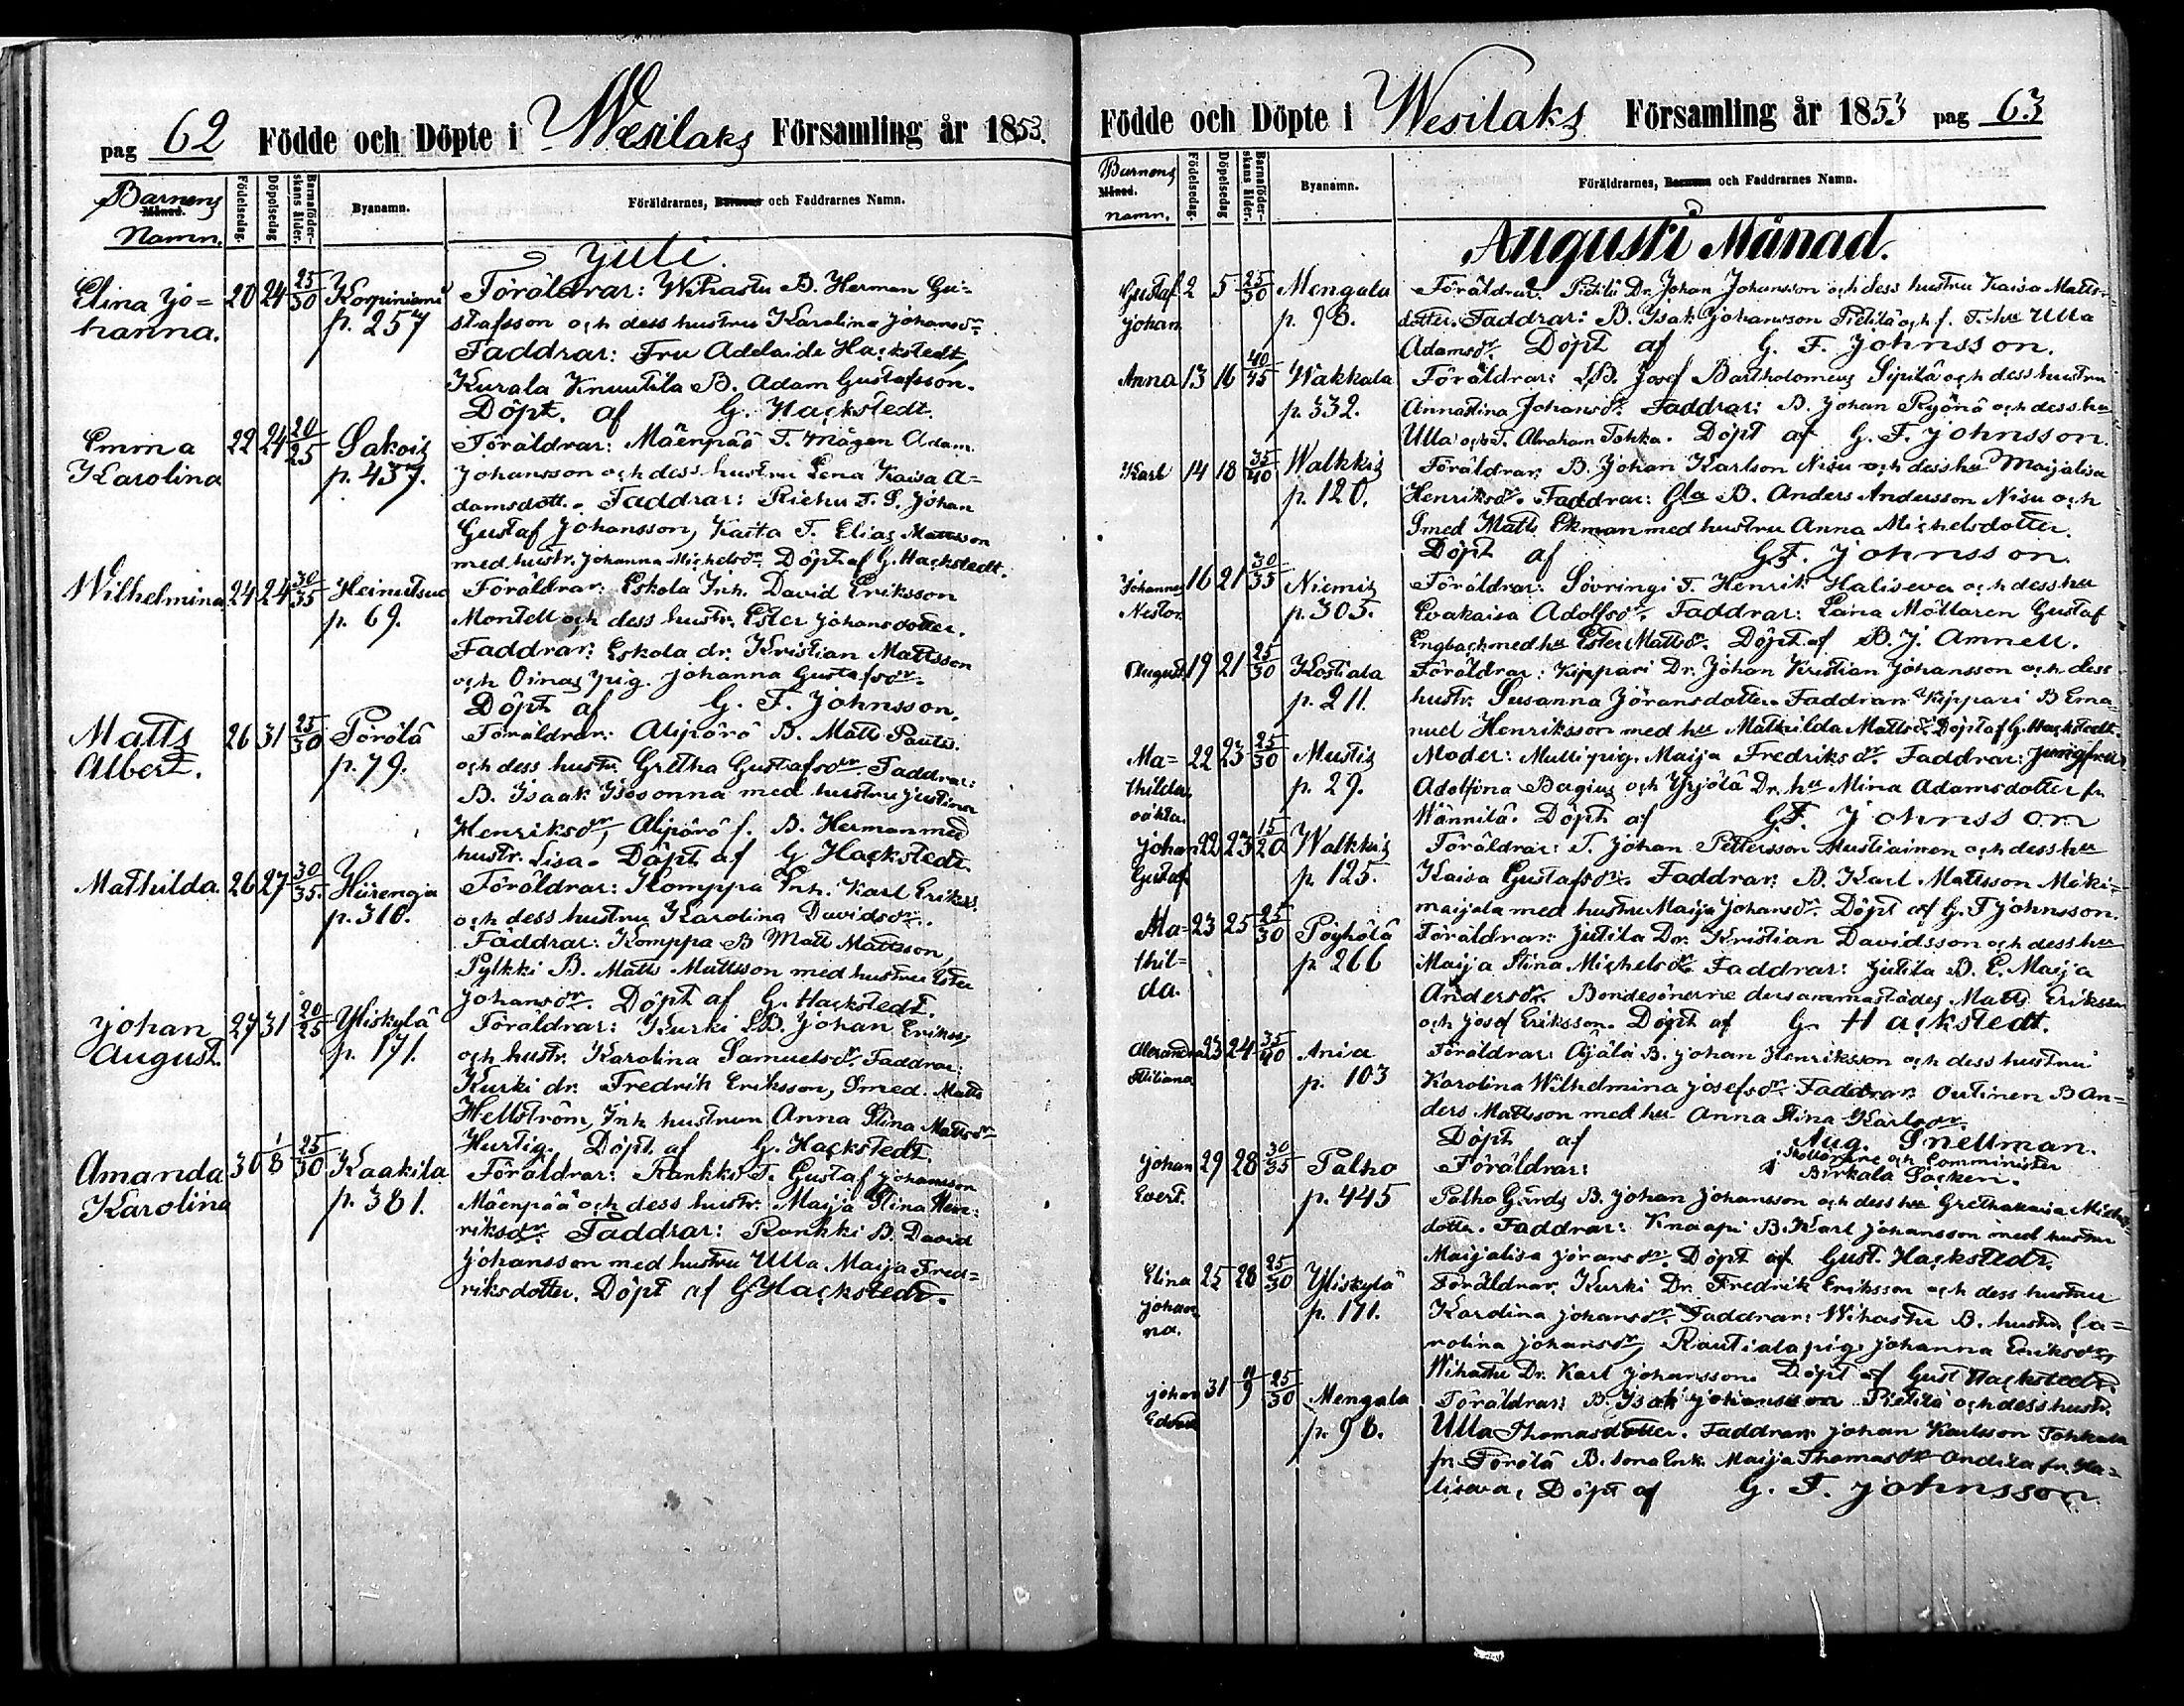 pag 62 Födde och Döpte i Wesilaks Församling år 1853.
Barnens Månad. Namn. Födelsedag. Döpelsedag Barnaföderskans ålder. Byanamn. Föräldrarnes, Barnens och Faddrarnes Namn.
Juli.
Elina Jo= 20 24 25/30 Korpiniemi Föräldrar: Wihastu B. Herman Gu=
hanna. p. 257 stafsson och dess hustru Karolina Johansdr
Faddrar: Fru Adelaide Hackstedt,
Kurala Knuutila B. Adam Gustafsson.
Döpt. af G. Hackstedt.
Emma 22 24 20/25 Sakois Föräldrar: Mäenpää T. mågen Adam
Karolina p. 437. Johansson och dess hustru Lena Kaisa A=
damsdott. Faddrar: Riehu T. S. Johan
Gustaf Johansson, Kaita T. Elias Mattsson
med hustr. Johanna Michelsdr Döpt af G. Hackstedt.
Wilhelmina 24 24 30/35 Heinutsuo Föräldrar: Eskola Inh. David Eriksson
p. 69. Montell och dess hustr. Ester Johansdotter.
Faddrar: Eskola dr. Kristian Mattsson
och Oinas pig. Johanna Gustafsdr.
Döpt af G. F. Johnsson.
Matts 26 31 25/30 Pörölä Föräldrar: Alipörö B. Matts Pauts.
Albert. p. 79. och dess hustr. Gretha Gustafsdr. Faddrar:
B. Isaak Isosonna med hustru Justina
Henriksdr, Alipörö f. B. Herman med
hustr. Lisa. Döpt af G Hackstedt.
Mathilda. 26 27 30/35. Hürenoja Föräldrar: Komppa Inh. Karl Erikss.
p. 310. och dess hustru Karolina Davidsdr.
Faddrar: Komppa B Matt Mattsson,
Pylkki B. Matts Mattsson med hustru Ester
Johansdr. Döpt af G. Hackstedt.
Johan 27 31 20/25 Yliskylä Föräldrar: Kurki LB. Johan Erikss,
August. p. 171. och hustr. Karolina Samuelsdr. Faddrar:
Kurki dr. Fredrik Eriksson, Smed. Matts
Hellström, Inh hustrun Anna Stina Mattsdr
Hurtig. Döpt af G. Hackstedt.
Amanda 30 1/8 25/30 Kaakila Föräldrar: Rankki T. Gustaf Johansson
Karolina p. 381. Mäenpää och dess hustr. Maija Stina Hen=
riksdr. Faddrar: Rankki B. David
Johansson med hustru Ulla Maija Fred=
riksdotter. Döpt af G Hackstedt.
Födde och Döpte i Wesilaks Församling år 1853 pag 63
Barnens Månad. namn. Födelsedag. Döpelsedag Barnaföderskans ålder. Byanamn. Föräldrarnes, Barnens och Faddrarnes Namn.
Augusti Månad.
Gustaf 2 5 25/30 Mengala Föräldrar. Pietilä Dr. Johan Johansson och dess hustru Kaisa Matts=
Johan p. 98. dotter. Faddrar: B. Isak Johansson Pietilä och f. T. hu Ulla
Adamsdr. Döpt af G. F. Johnsson.
Anna 13 16 40/45 Wakkala Föräldrar: LB. Josef Bartholomeus Sipilä och dess hustru
p. 332. Annastina Johansdr. Faddrar: B. Johan Ryönä och dess hu
Ulla och T. Abraham Tohka. Döpt af G. F. Johnsson.
Karl 14 18 35/40 Walkkis Föräldrar: B. Johan Karlson Nisu och dess hu Maijalisa
p. 120. Henriksdr. Faddrar: Gla B. Anders Andersson Nisu och
Smed Matts Ekman med hustru Anna Michelsdotter.
Döpt af G. F. Johnsson.
Johannes 16 21 30/35 Niemis Föräldrar: Sövringi T. Henrik Haliseva och dess hu
Nestor. p. 305. Evakaisa Adolfsdr. Faddrar: Mattaren Gustaf
Engback med hu Ester Mattsdr. Döpt af B. J. Amnell.
August. 19 21 25/30 Kostiala Föräldrar: Kippari Dr. Johan Kristian Johansson och dess
p. 211. hustr. Susanna Jöransdotter. Faddrar Kippari B Ema=
nuel Henriksson med hu Mathilda Mattsdr. Döpt af G. Hackstedt.
Ma= 22 23 25/30 Mustis Moder: Mullipig. Maija Fredriksdr. Faddrar: Jungfru
thilda. p. 29. Adolfina Bergius och Yrjölä Dr. hu Mina Adamsdotter fr.
oäkta. Männilä. Döpt af G. F. Johnsson
Johan 22 23 15/20 Walkkis Föräldrar: T. Johan Pettersson Mustiainen och dess hu
Gustaf p. 125. Kaisa Gustafsdr. Faddrar: B. Karl Mattsson Mäki=
maijala med hustru Maija Johansdr. Döpt af G. F Johnsson.
Ma= 23 25 25/30 Pöyhölä Föräldrar: Jutila Dr. Kristian Davidsson och dess hu
thil= p. 266 Maija Stina Michelsdr. Faddrar: Jutila B. E. Maija
da. Andersdr. Bondesönerne dersammastädes Matts Eriksson
och Josef Eriksson. Döpt af G. Hackstedt.
Alexandra 23 24 35/40 Ania Föräldrar: Ajälä B. Johan Henriksson och dess hustru
p. 103 Karolina Wilhelmina Josefsdr. Faddrar: Outinen B An=
ders Mattsson med hu Anna Stina Karlsdr.
Döpt af Aug. Snellman.
Skollärare och Comminister
i Birkala Socken.
Johan 29 28 30/35 Palho Föräldrar:
Evert. p. 445 Palho Gårds B. Johan Johansson och dess hu Grethakaisa Michels
dotter. Faddrar: Knaapi B. Karl Johansson med hustru
Maijalisa Jöransdr. Döpt af Gust. Hackstedt.
Elina 25 28 25/30 Yliskylä Föräldrar. Kurki Dr. Fredrik Eriksson och dess hustru
Johan= p. 171. Karolina Johansdr. Faddrar: Wihastu B. hustru Ca=
na. rolina Johansdr, Rautiala pig. Johanna Eriksdr,
Wihastu Dr. Karl Johansson. Döpt af Gust Hackstedt.
Johan 31 11/9 25/30 Mengala Föräldrar: B. Isak Johansson Pietilä och dess hustr.
Edvard p. 98. Ulla Thomasdotter. Faddrar: Johan Karlsson Tohkala
fr. Pörölä B. sona Enk. Maija Thomasdr Andila fr. Ha=
liseva, Döpt af G. F. Johnsson.